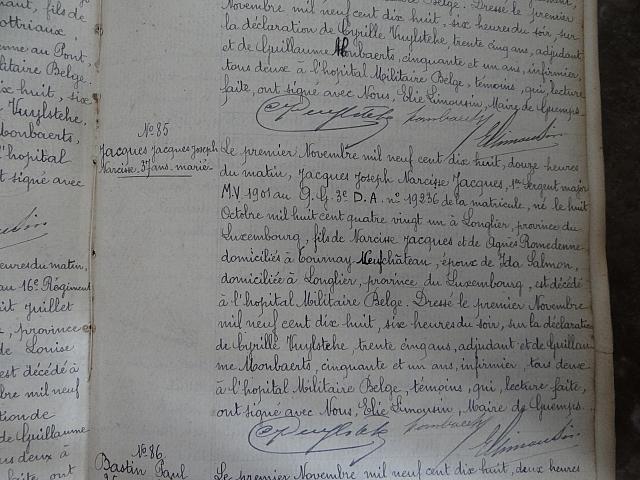 ant, fils de
ottriaux,
enne au Pont,
litaire Belge.
ix huit, six
Vuylsteke,
Monbaerts,
l'hopital
nt signé avec
heures du matin,
au 16e Régiment
it juillet
, province
de Louise
est décédé à
bre mil neuf
tion de
de Guillaume
us deux à
faite, ont
Novembre mil neuf cent dix huit, six heures du soir, sur
la déclaration de Cyrille Vuylsteke, trente cinq ans, adjudant
et de Guillaume Monbaerts, cinquante et un ans, infirmier,
tous deux à l'hopital Militaire Belge, témoins, qui, lecture
faite, ont signé avec Nous, Elie Limousin, Maire de Guemps.
C. Vuylsteke Monbaerts E. Limousin
No 85
Jacques Jacques Joseph
Narcisse 37 ans. marié
Le premier Novembre mil neuf cent dix huit, douze heures
du matin, Jacques Joseph Narcisse Jacques, 1er Sergent major
M.V. 1901 au G.G. 3e D.A. no 19236 de la matricule, né le huit
Octobre mil huit cent quatre vingt un à Longlier, province du
Luxembourg, fils de Narcisse Jacques et de Agnès Romedenne
domiciliés à Tournay Neufchâteau, époux de Ida Salmon,
domiciliée à Longlier, province du Luxembourg, est décédé
à l'hopital Militaire Belge. Dressé le premier Novembre
mil neuf cent dix huit, six heures du soir, sur la déclaration
de Cyrille Vuylsteke, trente cinq ans, adjudant et de Guillau-
me Monbaerts, cinquante et un ans, infirmier, tous deux
à l'hopital Militaire Belge, témoins, qui, lecture faite,
ont signé avec Nous, Elie Limousin, Maire de Guemps.
C. Vuylsteke Monbaerts E. Limousin
No 86
Bastin Paul
Le premier Novembre mil neuf cent dix huit, deux heures